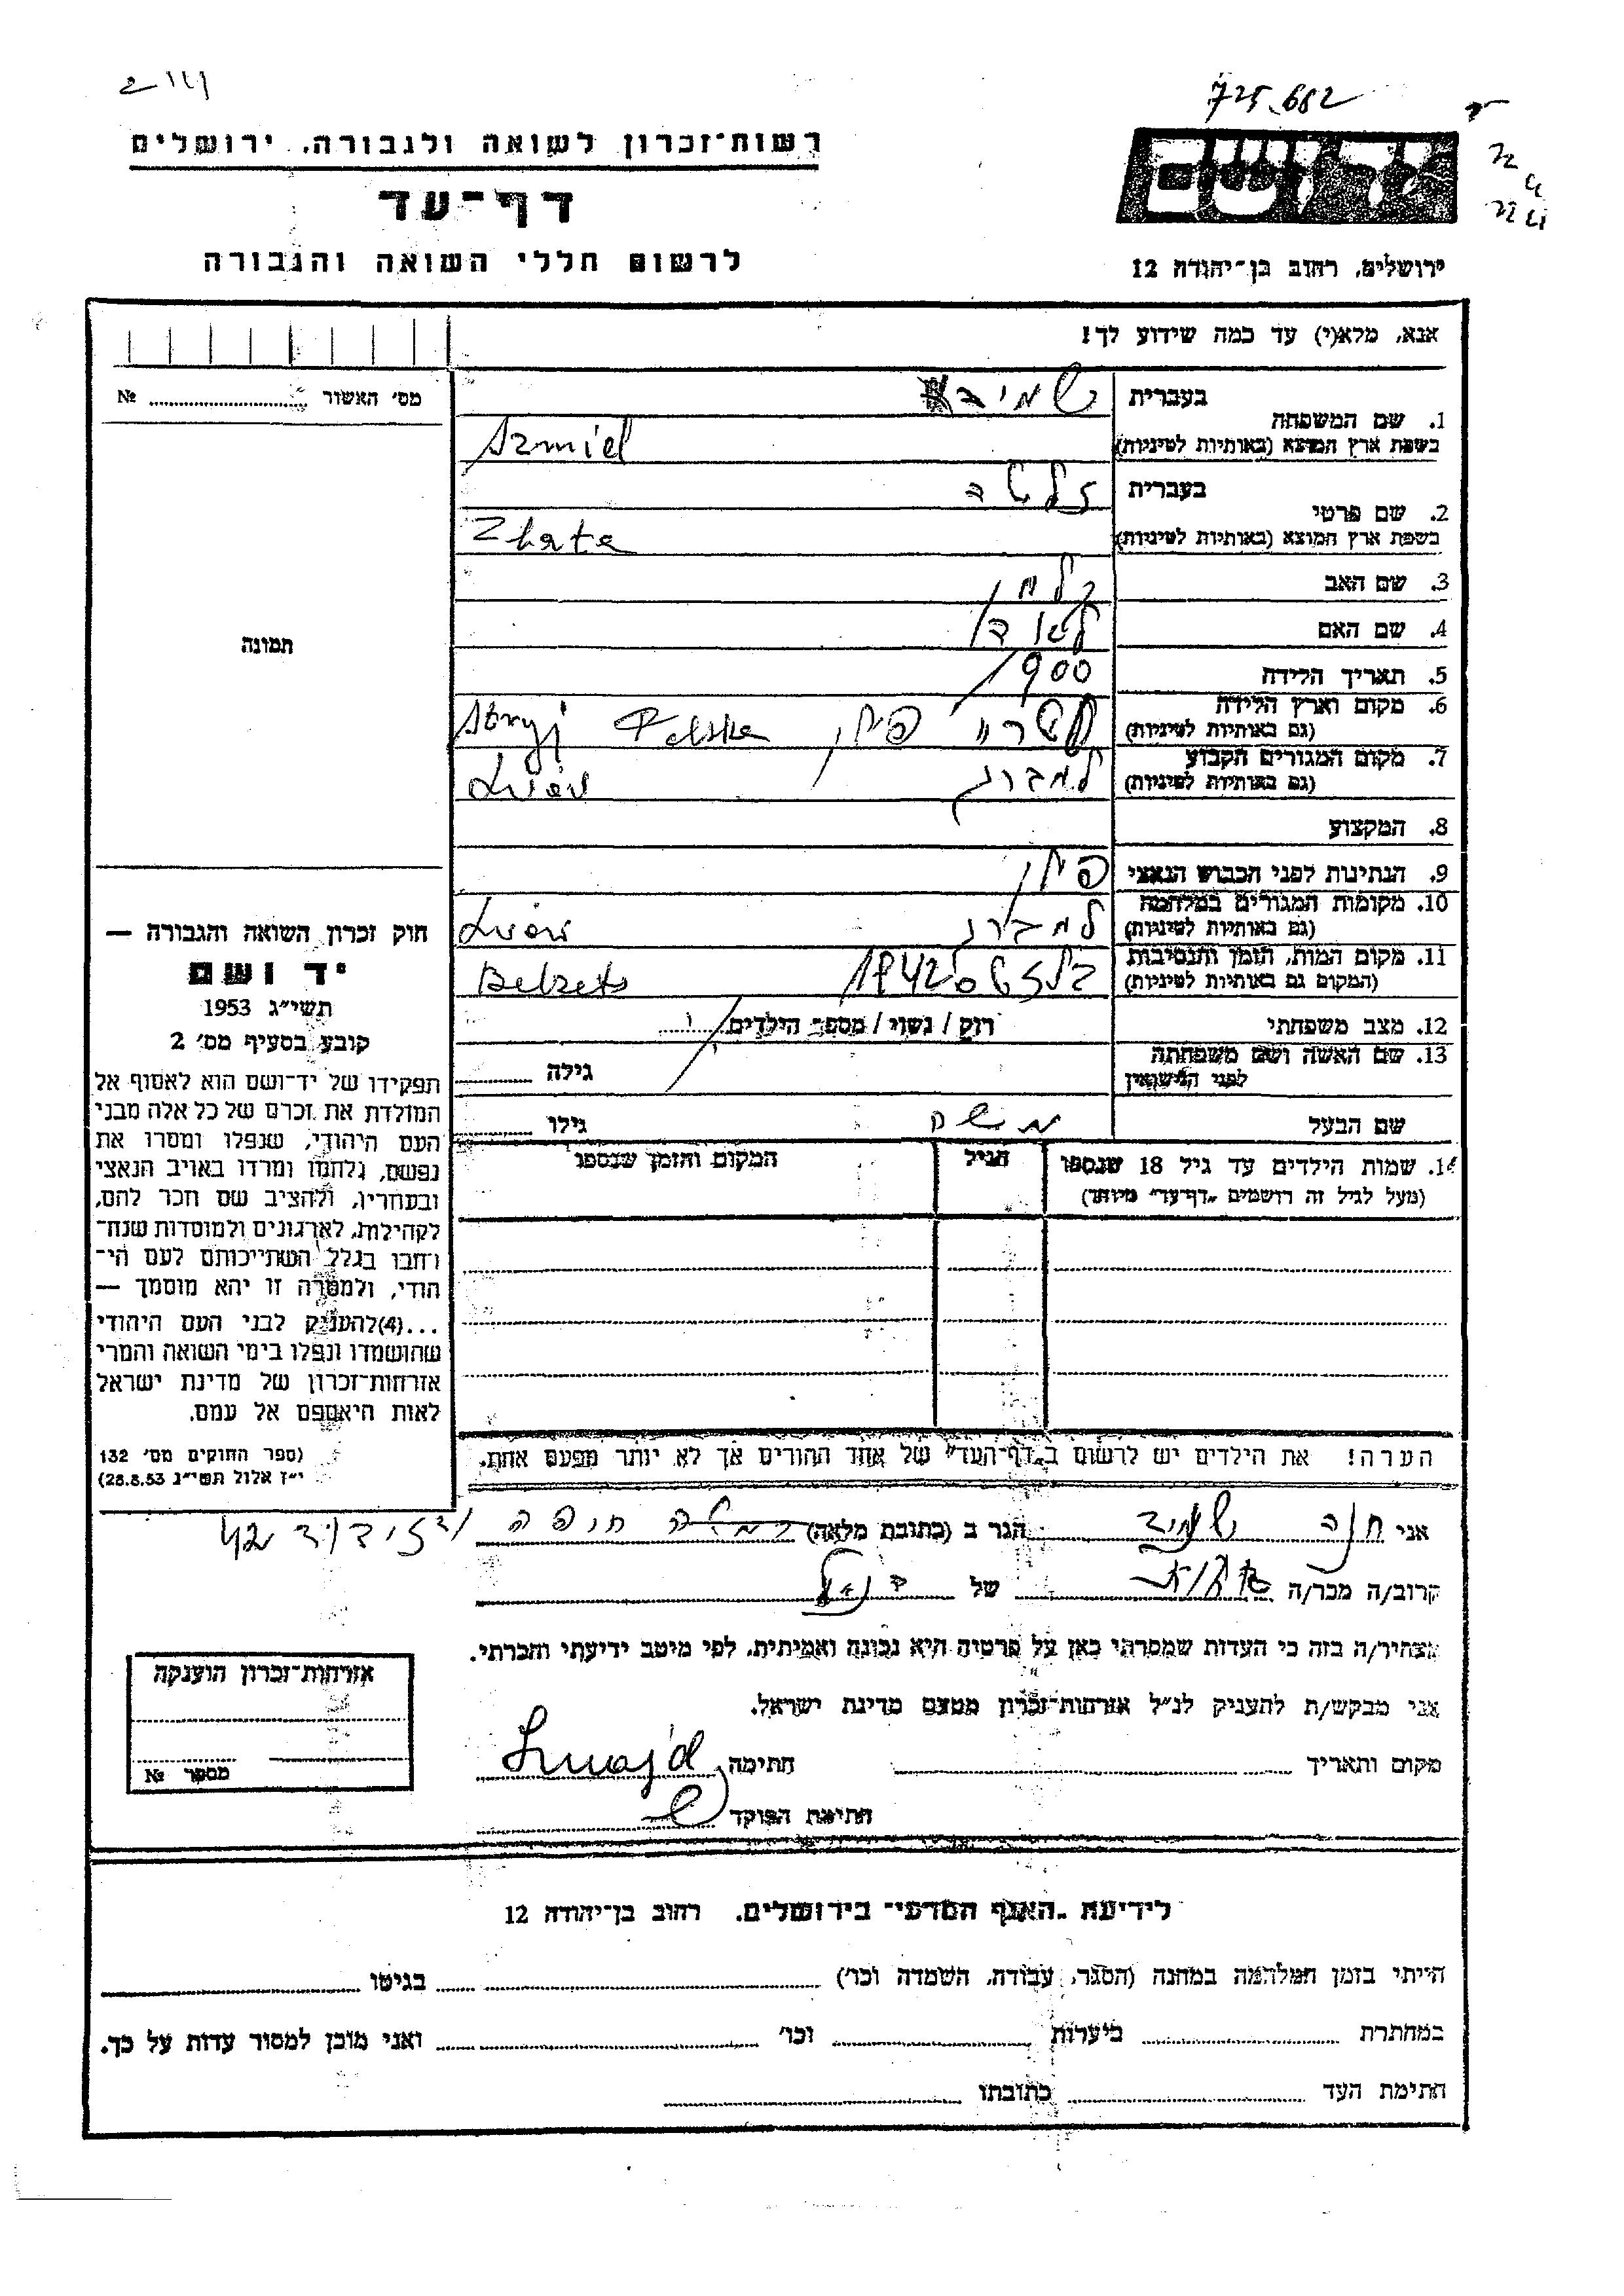 725.682
רשות־זכרון לשואה ולגבורה, ירושלים
דף־עד
לרשום חללי השואה והגבורה
יד ושם
ירושלים, רחוב בן־יהודה 12
אנא, מלא(י) עד כמה שידוע לך!
מס׳ האשור № 
1. שם המשפחה
בעברית
בשפת ארץ המוצא (באותיות לטיניות) Szmiel
2. שם פרטי
בעברית זלטה
בשפת ארץ המוצא (באותיות לטיניות) Zlata
3. שם האב
4. שם האם
5. תאריך הלידה 1900
6. מקום וארץ הלידה
(גם באותיות לטיניות) סטרי פולין Stryj Polska
7. מקום המגורים הקבוע
(גם באותיות לטיניות) למברג Lwów
8. המקצוע
9. הנתינות לפני הכבוש הנאצי פולין
10. מקומות המגורים במלחמה
(גם באותיות לטיניות) למברג Lwów
11. מקום המות, הזמן והנסיבות
(המקום גם באותיות לטיניות) בלזטס 1942 Belzets
12. מצב משפחתי רוק / נשוי / מספר הילדים
13. שם האשה ושם משפחתה
לפני הנישואין גילה
שם הבעל משה גילו
14. שמות הילדים עד גיל 18 שנספו
(מעל לגיל זה רושמים „דף־עד״ מיוחד)
הגיל
המקום והזמן שנספו
הערה! את הילדים יש לרשום ב„דף־העד״ של אחד ההורים אך לא יותר מפעם אחת.
תמונה
חוק זכרון השואה והגבורה —
יד ושם
תשי״ג 1953
קובע בסעיף מס׳ 2
תפקידו של יד־ושם הוא לאסוף אל
המולדת את זכרם של כל אלה מבני
העם היהודי, שנפלו ומסרו את
נפשם, נלחמו ומרדו באויב הנאצי
ובעוזריו, ולהציב שם וזכר להם,
לקהילות, לארגונים ולמוסדות שנח־
רבו בגלל השתייכותם לעם הי־
הודי, ולמטרה זו יהא מוסמך —
...(4) להעניק לבני העם היהודי
שהושמדו ונפלו בימי השואה והמרי
אזרחות־זכרון של מדינת ישראל
לאות היאספם אל עמם.
(ספר החוקים מס׳ 132
י״ז אלול תשי״ג 28.8.53)
אני חנה הגר ב (כתובת מלאה) חיפה
קרוב/ה מכר/ה של
מצהיר/ה בזה כי העדות שמסרתי כאן על פרטיה היא נכונה ואמיתית, לפי מיטב ידיעתי והכרתי.
אני מבקש/ת להעניק לנ״ל אזרחות־זכרון מטעם מדינת ישראל.
מקום ותאריך חתימה
חתימת הפוקד
אזרחות־זכרון הוענקה
מספר №
לידיעת „האגף המדעי״ בירושלים, רחוב בן־יהודה 12
הייתי בזמן המלחמה במחנה (הסגר, עבודה, השמדה וכו׳) בגיטו
במחתרת ביערות וכו׳ ואני מוכן למסור עדות על כך.
חתימת העד כתובתו